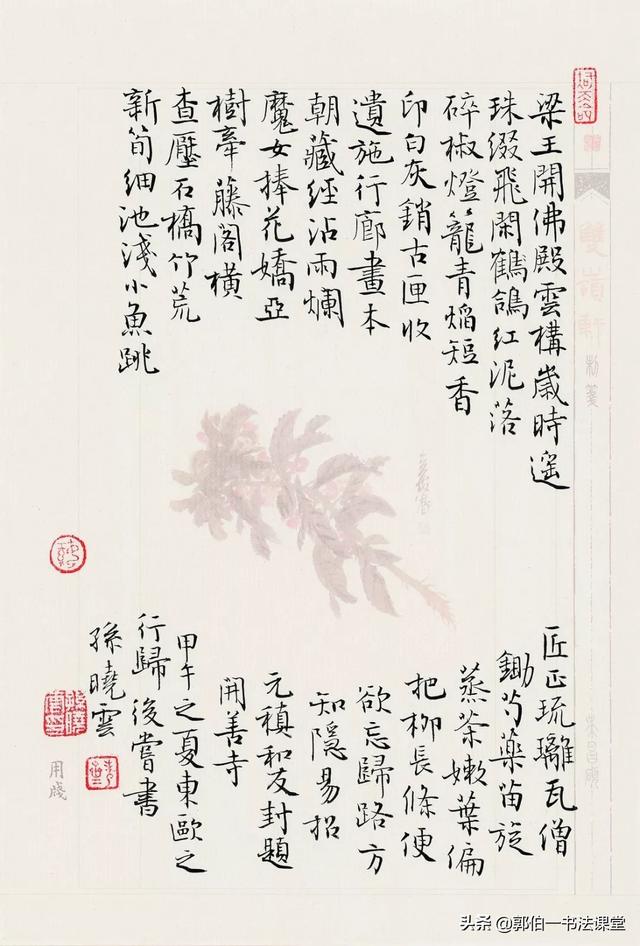 梁王開佛殿雲構歲時遥
珠缀飛閑鶴鴿紅泥落
碎椒燈籠青焰短香
印白灰銷古匣收
遺施行廊畫本
朝藏經沾雨爛
魔女捧花嬌亞
樹牽藤閣橫
查壓石橋竹荒
新筍細池淺小魚跳
匠正琉璃瓦僧
鋤芍藥苗旋
蒸茶嫩葉偏
把柳長條便
欲忘歸路方
知隱易招
元稹和友封題
開善寺
甲午之夏東歐之
行歸後嘗書
孫曉雲
雙嶺軒
制箋
用箋
头条 @郭伯一书法课堂